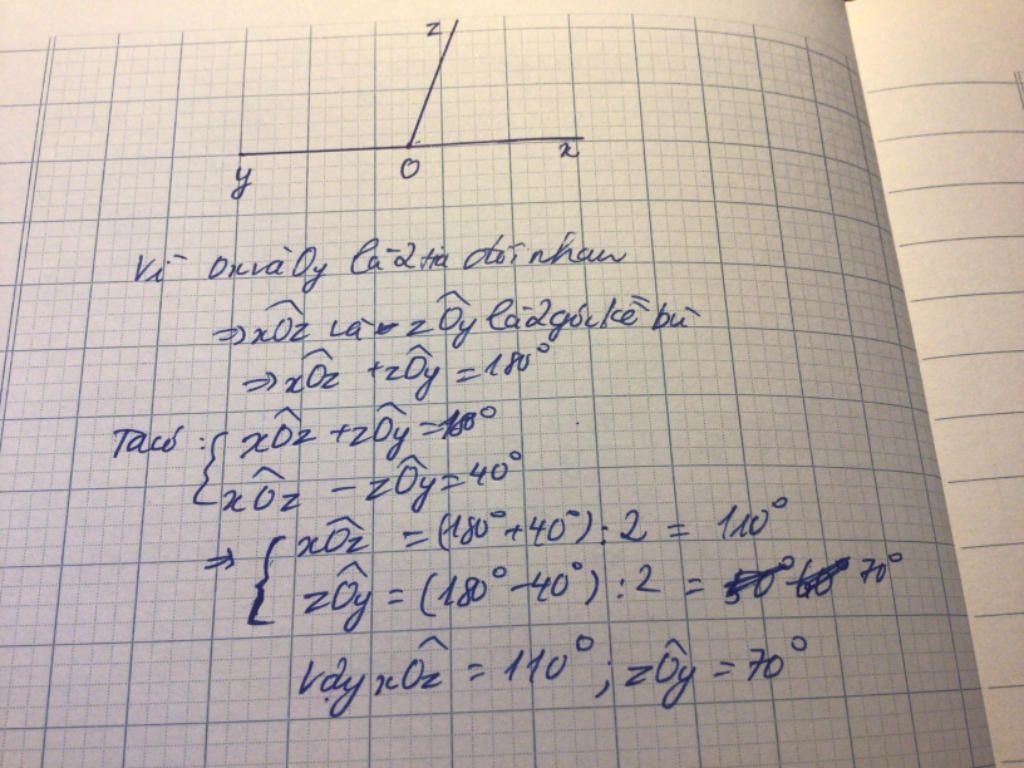 z
y O x
Vì Ox và Oy là 2 tia đối nhau
⇒ xÔz và zÔy là 2 góc kề bù
⇒ xÔz + zÔy = 180°
Ta có : { xÔz + zÔy = 180°
xÔz - zÔy = 40°
⇒ { xÔz = (180° + 40°) : 2 = 110°
zÔy = (180° - 40°) : 2 = 70°
Vậy xÔz = 110° ; zÔy = 70°